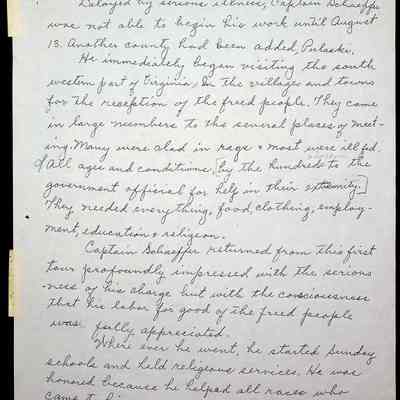 Delayed by serious illness, Captain Schaeffer
was not able to begin his work until August
13. Another county had been added, Pulaski.
He immediately began visiting the south
western part of Virginia, in the villages and towns
for the reception of the freed people. They came
in large numbers to the several places of meet-
ing. Many were clad in rags & most were ill fed.
All ages and conditions, [by the hundreds to the
government official for help in their extremity.]
They needed everything, food, clothing, employ-
ment, education & religion.
Captain Schaeffer returned from this first
tour profoundly impressed with the serious
-ness of his charge but with the consciousness
that his labor for good of the freed people
was fully appreciated.
Where ever he went, he started Sunday
schools and held religious services. He was
honored because he helped all races who
came to